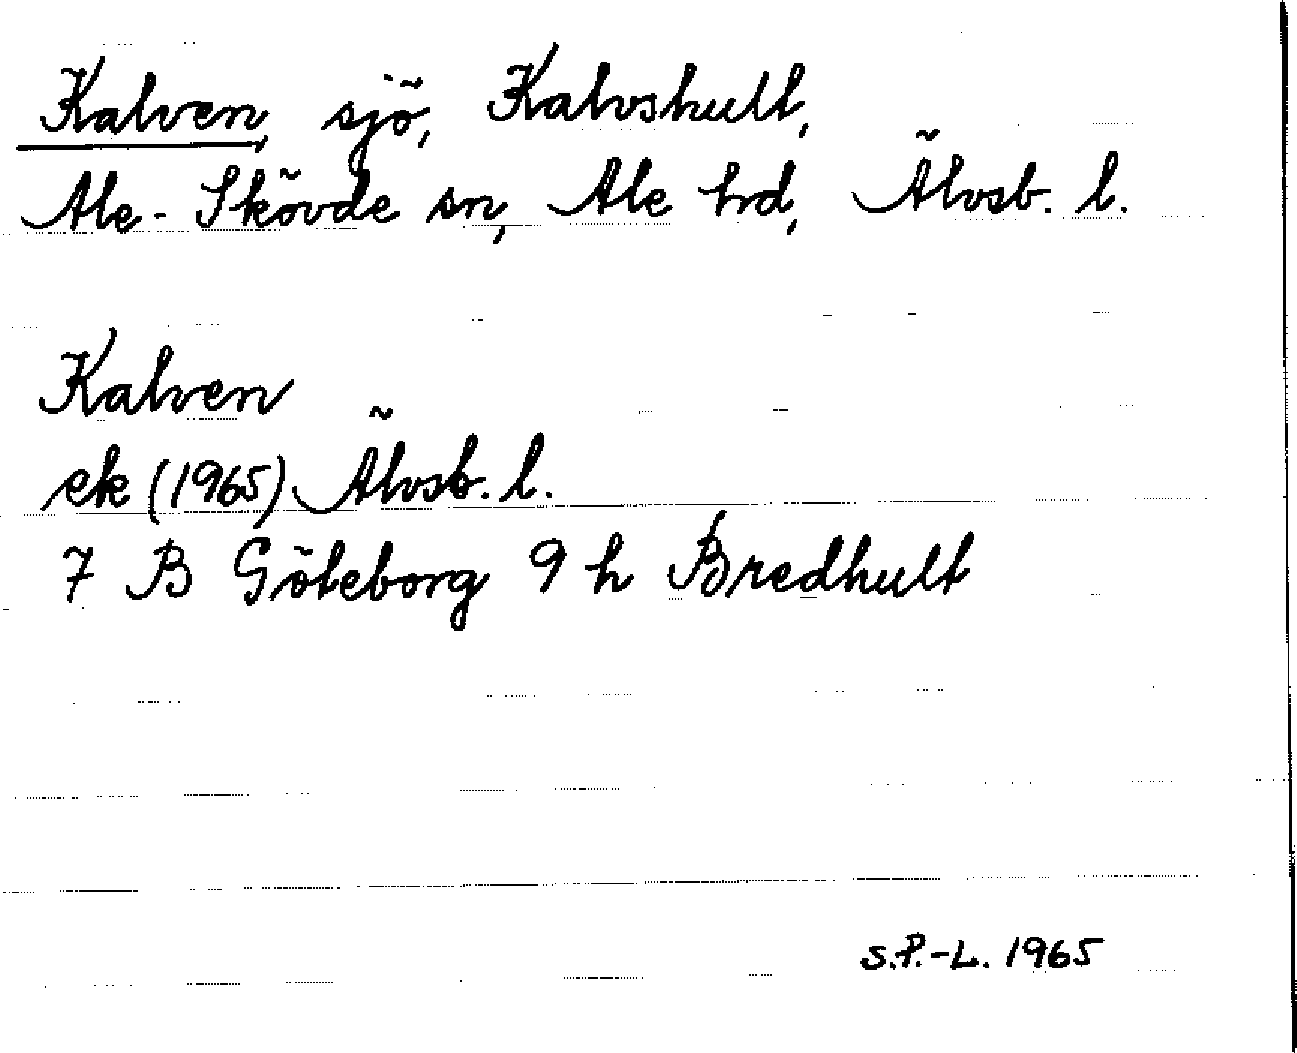 Kalven, sjö, Kalvshult,
Ale-Skövde sn, Ale hd, Älvsb. l.
Kalven
ek (1965) Älvsb. l.
7 B Göteborg 9 h Bredhult
S.P.-L. 1965